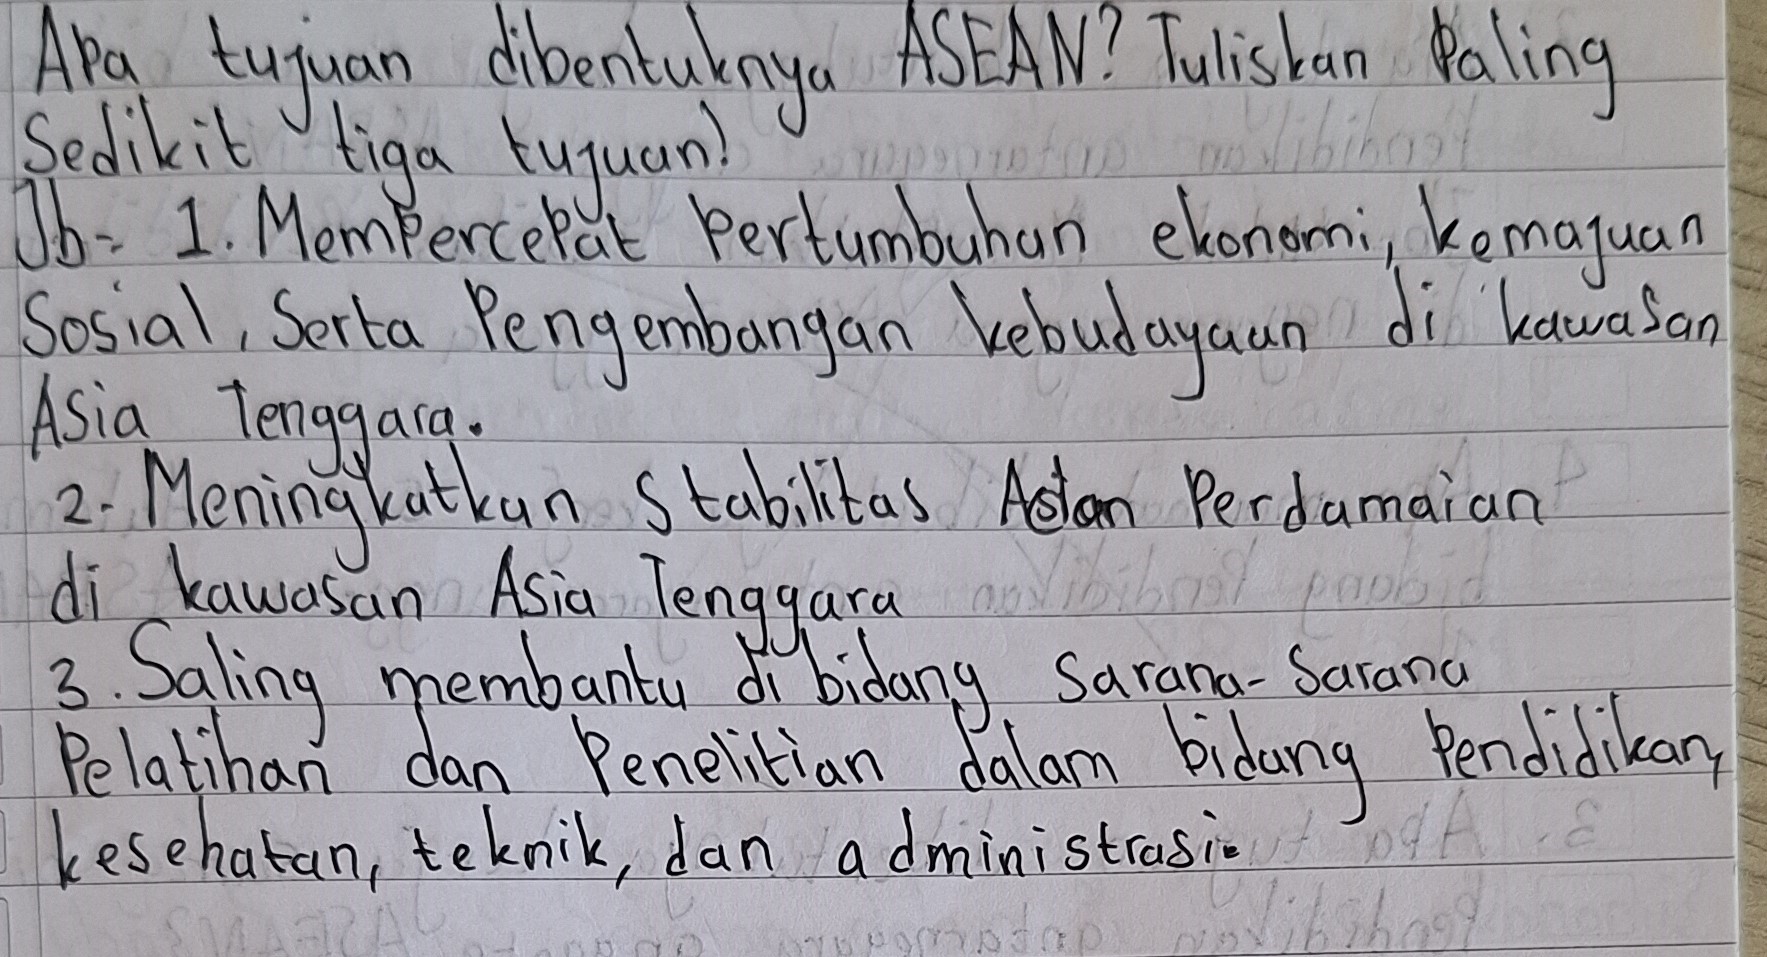 Apa tujuan dibentuknya ASEAN? Tuliskan Paling
Sedikit tiga tujuan!
Jb= 1. Mempercepat Pertumbuhan ekonomi, kemajuan
Sosial, Serta Pengembangan kebudayaan di kawasan
Asia Tenggara.
2. Meningkatkan Stabilitas Perdamaian
di kawasan Asia Tenggara
3. Saling membantu di bidang Sarana-Sarana
Pelatihan dan Penelitian dalam bidang Pendidikan,
kesehatan, teknik, dan administrasi.